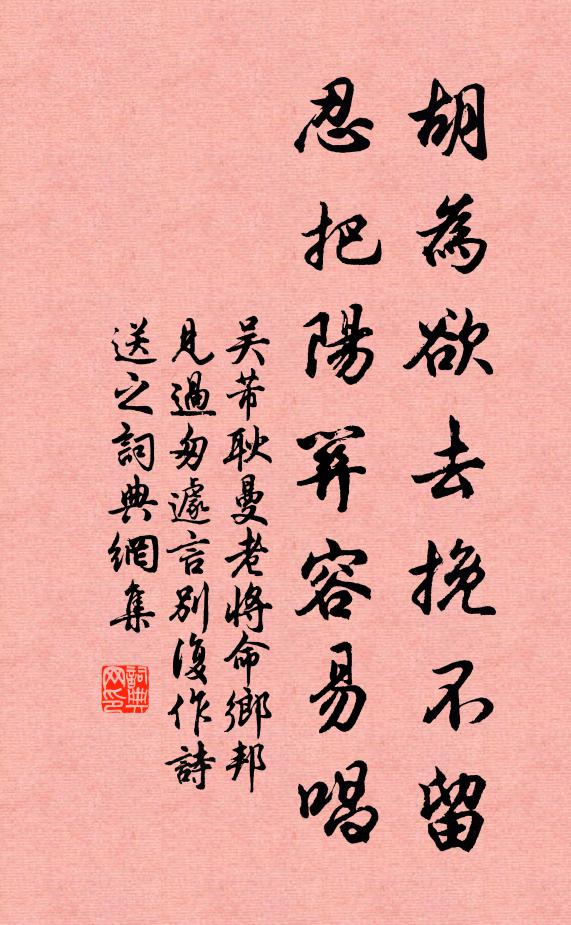 胡為欲去挽不留
忍把陽關容易唱
吴芾耿曼老將命鄉邦
見過匆遽言別復作詩
送之詞典網集
詞典网印